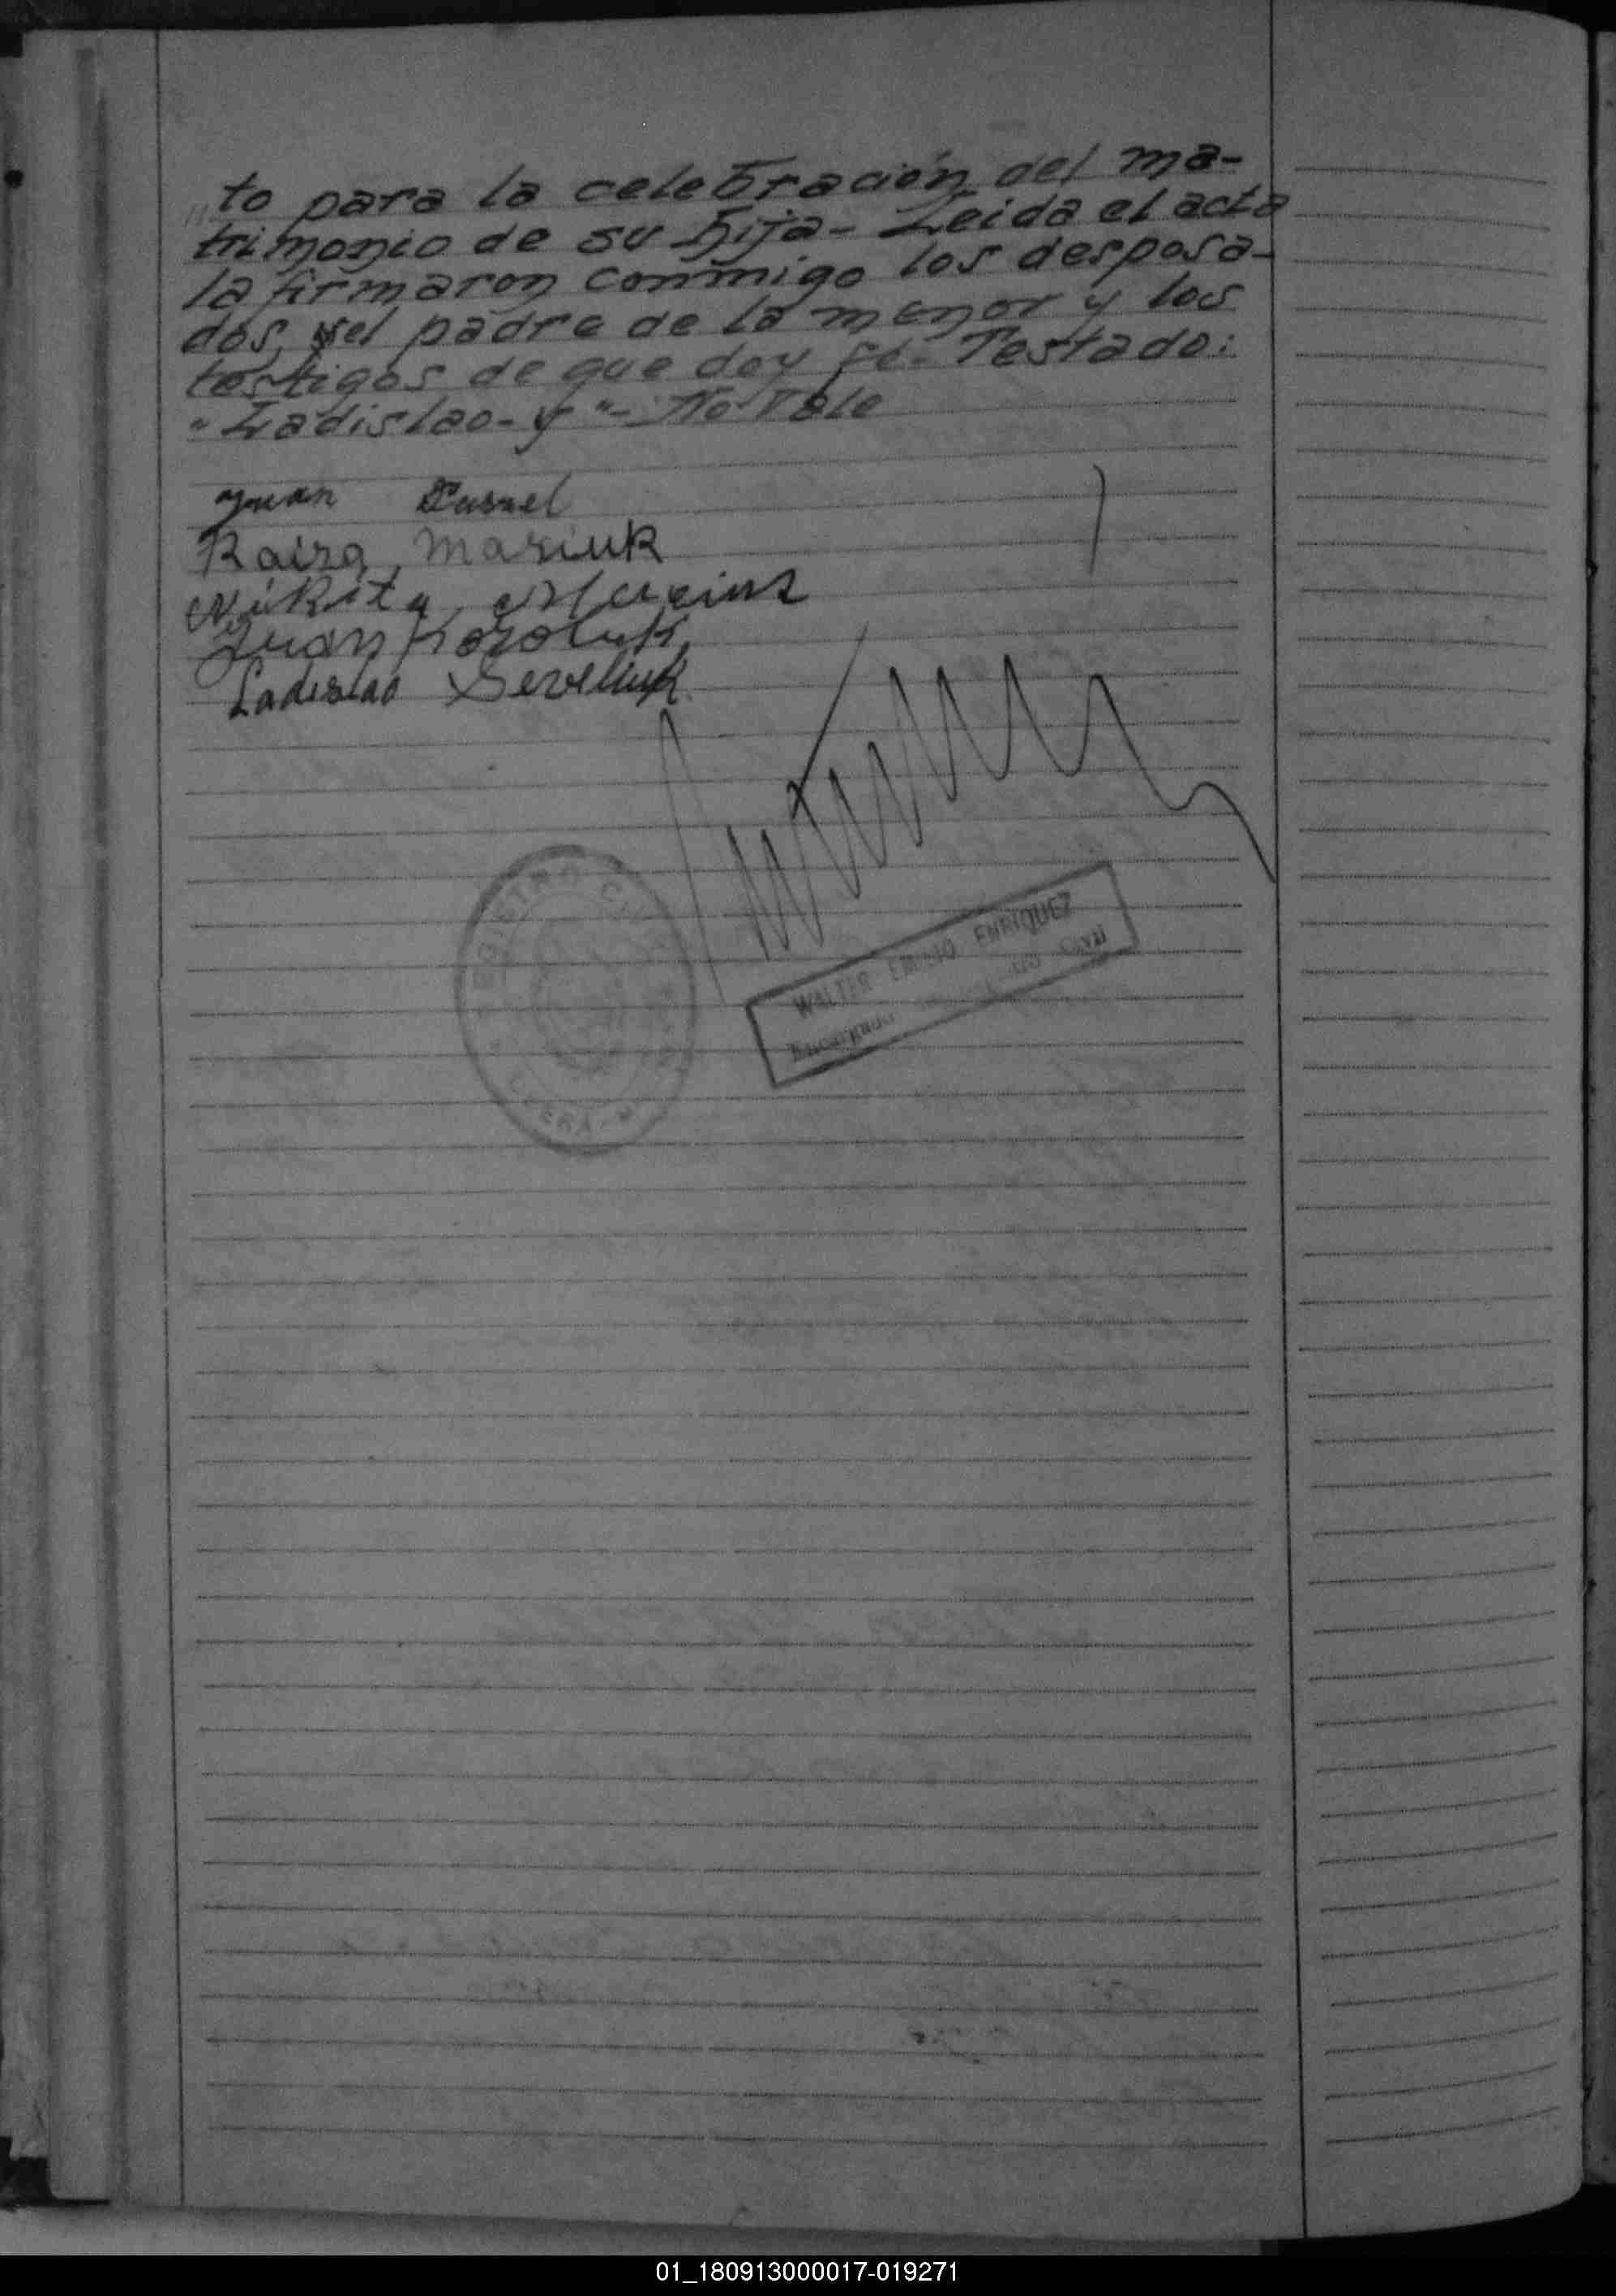 to para la celebración del ma-
trimonio de su hija- Leida el acta
la firmaron conmigo los desposa-
dos, y el padre de la menor y los
testigos de que doy fé- Testado:
"Ladislao- y"- No Vale
Juan
Raisa Masiuk
Nikita
Juan Koroluk
Ladislao Sereliuk
REGISTRO CIVIL
WALTER EMILIO ENRIQUEZ
Encargado CIVIL
01_180913000017-019271